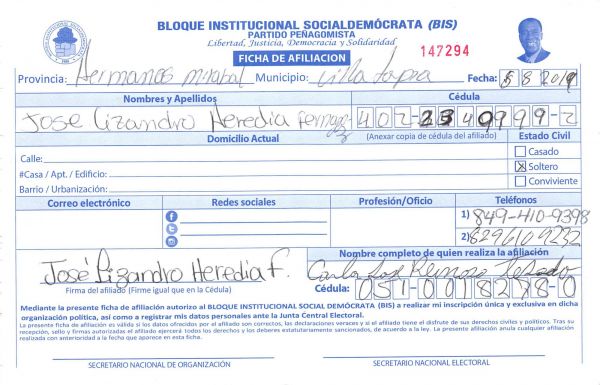 BLOQUE INSTITUCIONAL SOCIALDEMÓCRATA (BIS)
PARTIDO PEÑAGOMISTA
Libertad, Justicia, Democracia y Solidaridad
FICHA DE AFILIACION 147294
Provincia: Hermanas mirabal Municipio: Villa tapia Fecha: 8 2019
Nombres y Apellidos Cédula
Jose Lizandro Heredia 402-2340999-2
Domicilio Actual (Anexar copia de cédula del afiliado) Estado Civil
Calle: Casado
#Casa / Apt. / Edificio: X Soltero
Barrio / Urbanización: Conviviente
Correo electrónico Redes sociales Profesión/Oficio Teléfonos
1) 849-410-9398
2) 829 610 9232
Nombre completo de quien realiza la afiliación
José Lizandro Heredia F. Carlos Jose Reinoso
Firma del afiliado (Firme igual que en la Cédula) Cédula: 051-0018278-0
Mediante la presente ficha de afiliación autorizo al BLOQUE INSTITUCIONAL SOCIAL DEMÓCRATA (BIS) a realizar mi inscripción única y exclusiva en dicha
organización política, así como a registrar mis datos personales ante la Junta Central Electoral.
La presente ficha de afiliación es válida si los datos ofrecidos por el afiliado son correctos, las declaraciones veraces y si el afiliado tiene el disfrute de sus derechos civiles y políticos. Tras su
recepción, sello y firmas autorizadas el afiliado ejercerá todos los derechos y los deberes estatutariamente sancionados, de acuerdo a la ley. La presente afiliación anula cualquier afiliación
realizada con anterioridad a la fecha que aparece en esta ficha.
SECRETARIO NACIONAL DE ORGANIZACIÓN SECRETARIO NACIONAL ELECTORAL